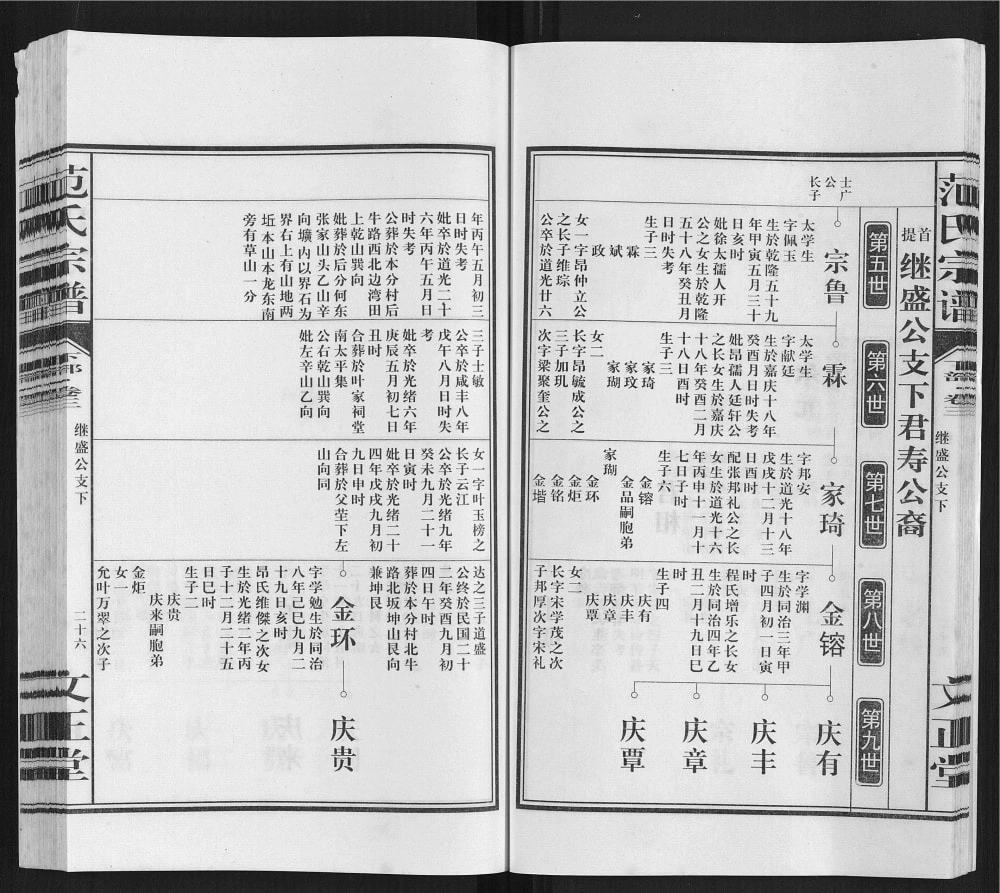 范氏宗谱
下部卷三
继盛公支下
文正堂
提首
继盛公支下君寿公裔
第五世
第六世
第七世
第八世
第九世
士广
公
长子
宗鲁
太学生
字佩玉
生於乾隆五十九
年甲寅五月三十
日亥时
妣徐太孺人开
公之女生於乾隆
五十八年癸丑月
日时失考
生子三
霖
斌
政
女一字昂仲立公
之长子维琮
公卒於道光廿六
霖
太学生
字献廷
生於嘉庆十八年
癸酉月日时失考
妣昂孺人廷轩公
之长女生於嘉庆
十八年癸酉二月
十八日酉时
生子三
家琦
家玟
家瑚
女二
长字昂毓成公之
三子加玑
次字梁聚奎公之
家琦
字邦安
生於道光十八年
戊戌十二月十三
日酉时
配张邦礼公之长
女生於道光十六
年丙申十一月十
七日子时
生子六
金镕
金品嗣胞弟
家瑚
金环
金炬
金铭
金塔
金镕
字学渊
生於同治三年甲
子四月初一日寅
时
程氏增乐之长女
生於同治四年乙
丑二月十九日巳
时
生子四
庆有
庆丰
庆章
庆覃
女二
长字宋学茂之次
子邦厚次字宋礼
庆有
庆丰
庆章
庆覃
年丙午五月初三
日时失考
妣卒於道光二十
六年丙午五月日
时失考
公葬於本分村后
牛路西北边湾田
上乾山巽向
妣葬於后分何东
张家山头乙山辛
向圹内以界石为
界右上有山地两
坵本山本龙东南
旁有草山一分
三子士敏
公卒於咸丰八年
戊午八月日时失
考
妣卒於光绪六年
庚辰五月初七日
丑时
合葬於叶家祠堂
南太平集
公右乾山巽向
妣左辛山乙向
女一字叶玉榜之
长子云江
公卒於光绪九年
癸未九月二十一
日寅时
妣卒於光绪二十
四年戊戌九月初
九日申时
合葬於父茔下左
山向同
达之三子道盛
公终於民国二十
二年癸酉九月初
四日午时
葬於本分村北牛
路北坂坤山艮向
兼坤艮
金环
字学勉生於同治
八年己巳九月二
十九日亥时
昂氏维傑之次女
生於光绪二年丙
子十二月二十五
日巳时
生子二
庆贵
庆来嗣胞弟
金炬
女一
允叶万翠之次子
庆贵
范氏宗谱
下部卷三
继盛公支下
二十六
文正堂